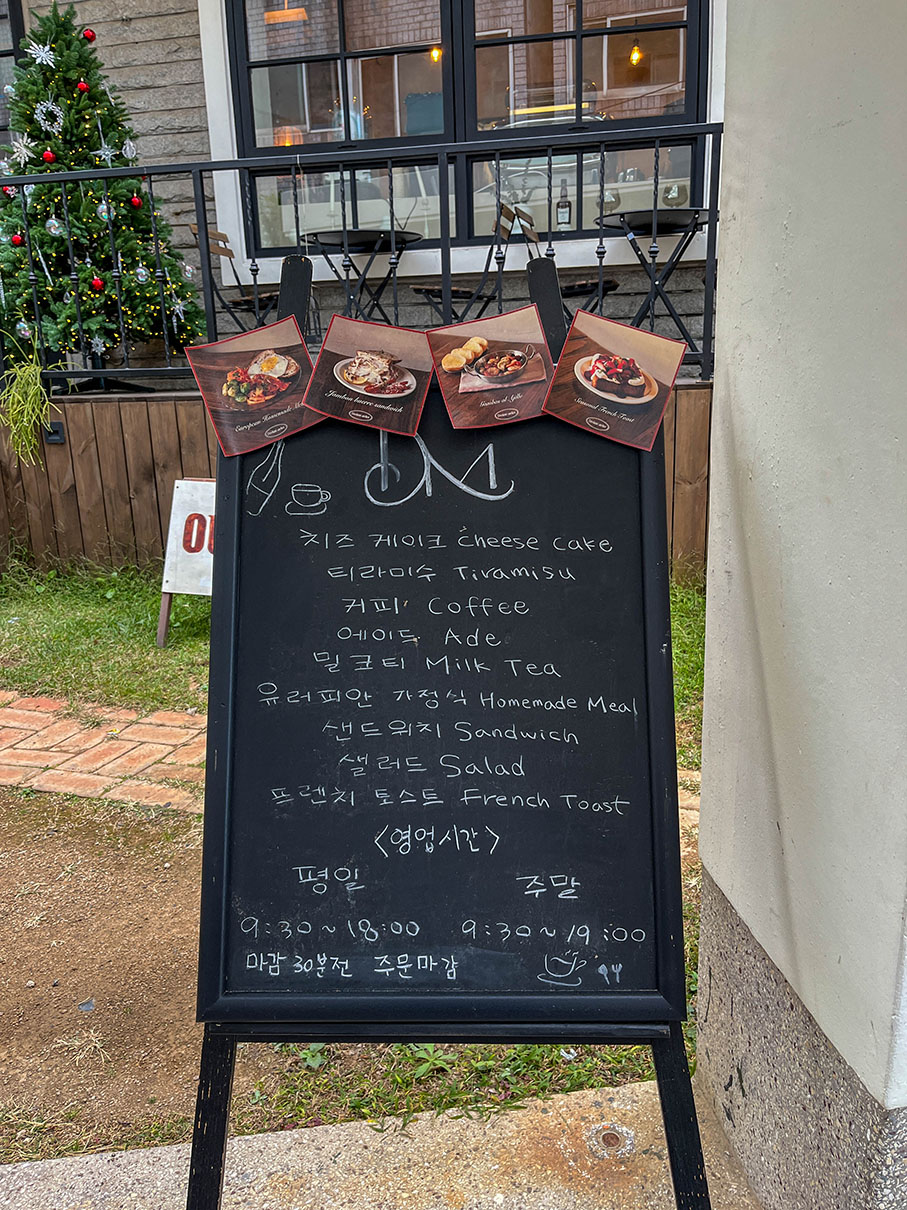 European Homemade Meal
Jambon beurre sandwich
Gambas al Ajillo
Seasonal French Toast
OU
DM
치즈 케이크 Cheese cake
티라미수 Tiramisu
커피 Coffee
에이드 Ade
밀크티 Milk Tea
유러피안 가정식 Homemade Meal
샌드위치 Sandwich
샐러드 Salad
프렌치 토스트 French Toast
<영업시간>
평일 주말
9:30~18:00 9:30~19:00
마감 30분전 주문마감